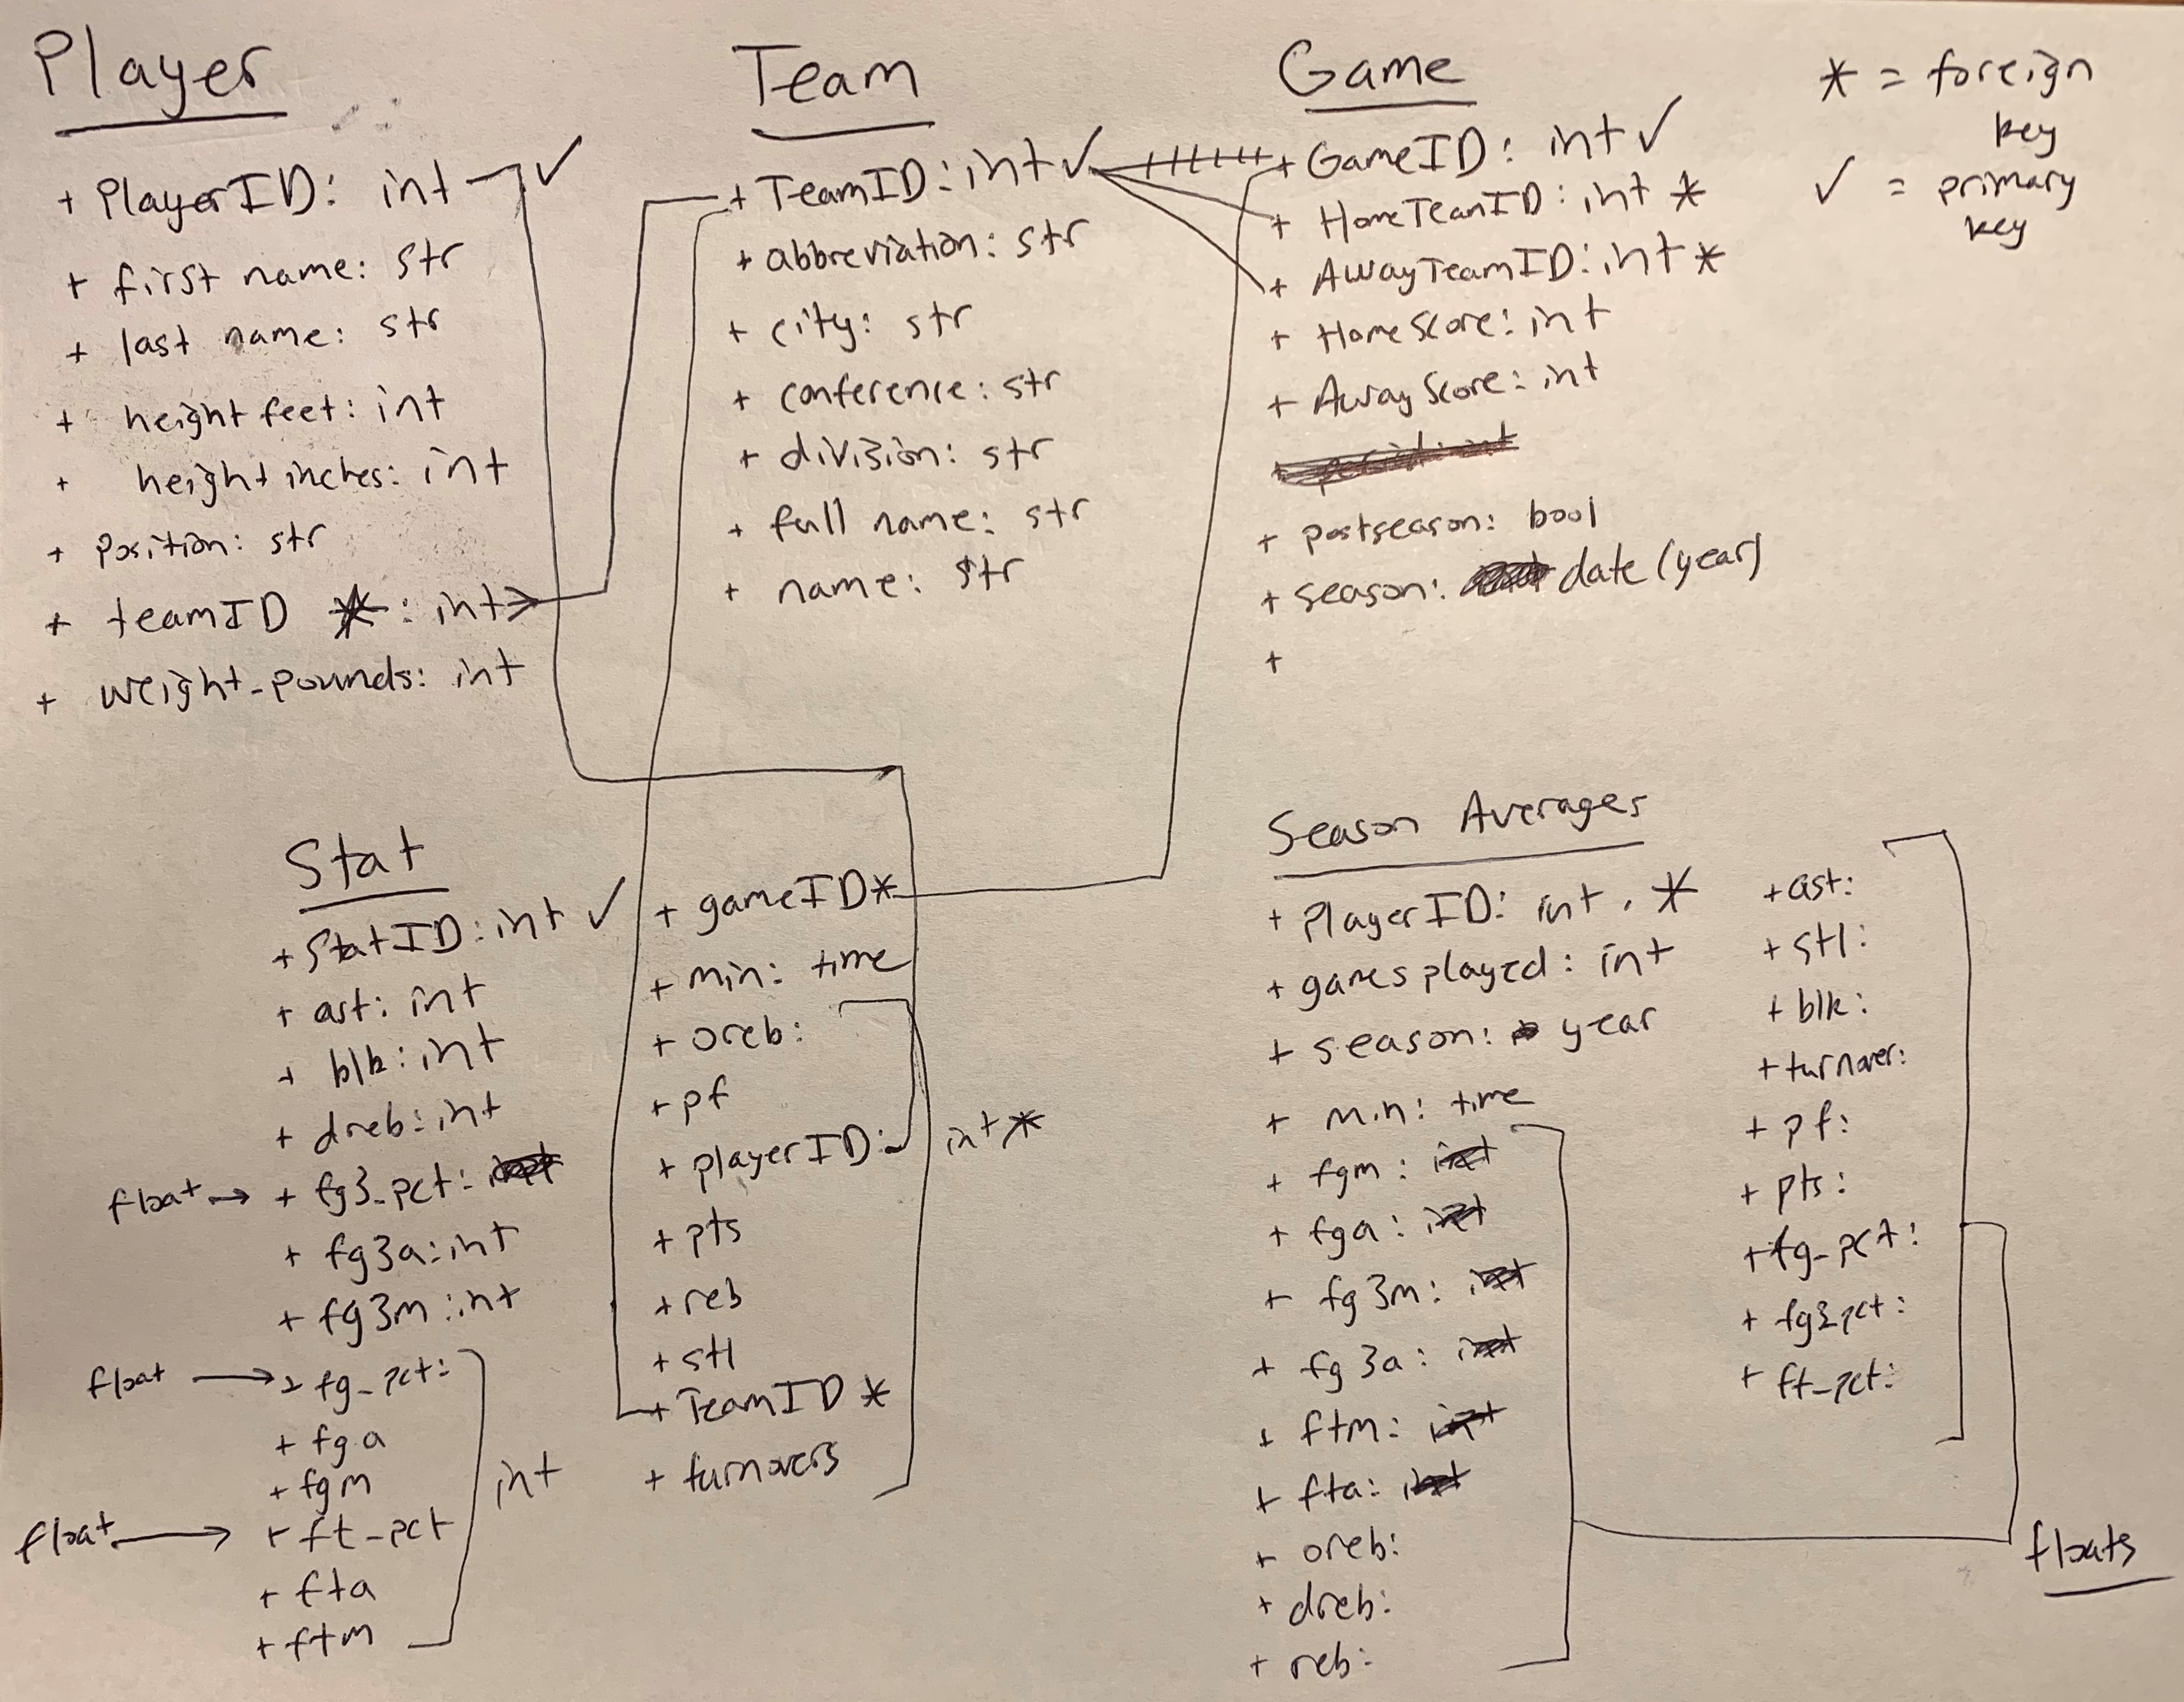 Player
+ PlayerID: int ✓
+ first name: str
+ last name: str
+ height feet: int
+ height inches: int
+ Position: str
+ teamID *: int
+ weight_pounds: int
Team
+ TeamID: int ✓
+ abbreviation: str
+ city: str
+ conference: str
+ division: str
+ full name: str
+ name: str
Game
+ GameID: int ✓
+ HomeTeamID: int *
+ AwayTeamID: int *
+ HomeScore: int
+ AwayScore: int
+ postseason: bool
+ season: date (year)
+
* = foreign
key
✓ = primary
key
Stat
+ StatID: int ✓
+ ast: int
+ blk: int
+ dreb: int
float → + fg3_pct:
+ fg3a: int
+ fg3m: int
float → + fg_pct:
+ fga
+ fgm
int
float → + ft_pct
+ fta
+ ftm
+ gameID*
+ min: time
+ oreb:
+ pf
+ playerID:
int *
+ pts
+ reb
+ stl
+ TeamID *
+ turnovers
Season Averages
+ PlayerID: int. *
+ games played: int
+ season: year
+ min: time
+ fgm: int
+ fga: int
+ fg3m: int
+ fg3a: int
+ ftm: int
+ fta: int
+ oreb:
+ dreb:
+ reb:
+ ast:
+ stl:
+ blk:
+ turnover:
+ pf:
+ pts:
+ fg_pct:
+ fg3pct:
+ ft_pct:
floats